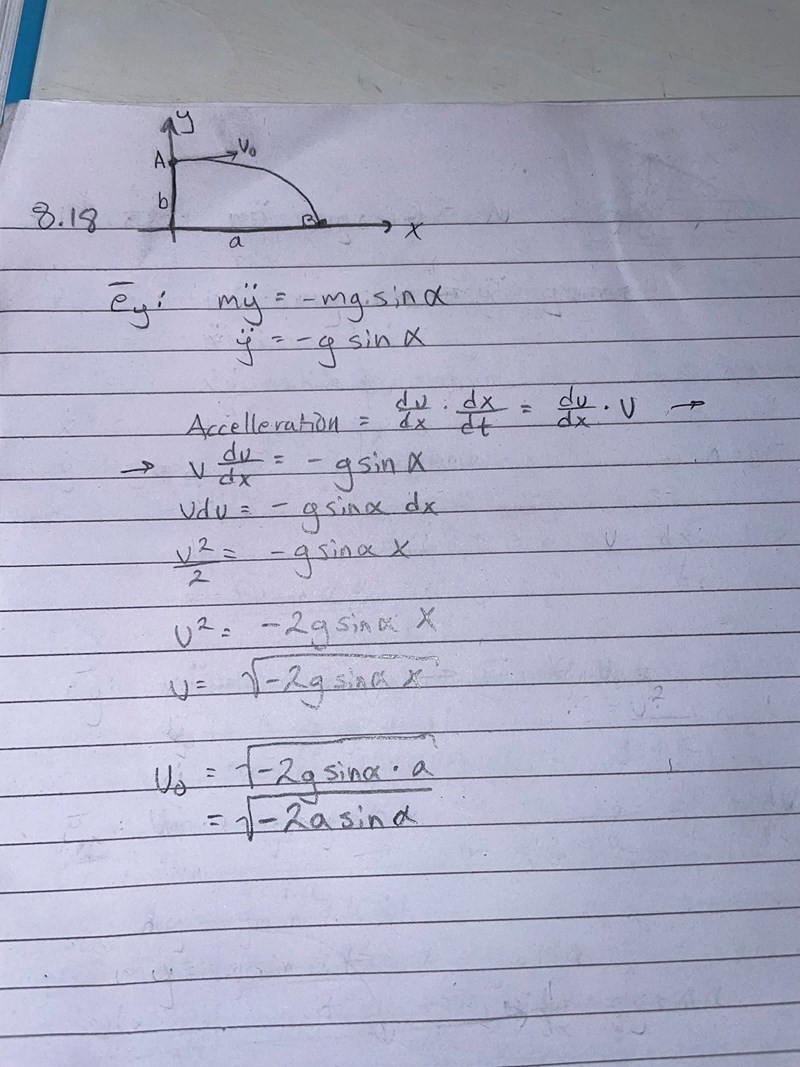 y
A v₀
b
8.18 B x
a
ēy: mÿ = -mg.sinα
ÿ = -g sin α
Accelleration = dv/dx · dx/dt = dv/dx · v →
→ v dv/dx = - g sin α
vdv = - g sinα dx
v²/2 = - g sinα x
v² = -2g sinα x
v = √-2g sinα x
v₀ = √-2g sinα · a
= √-2a sinα